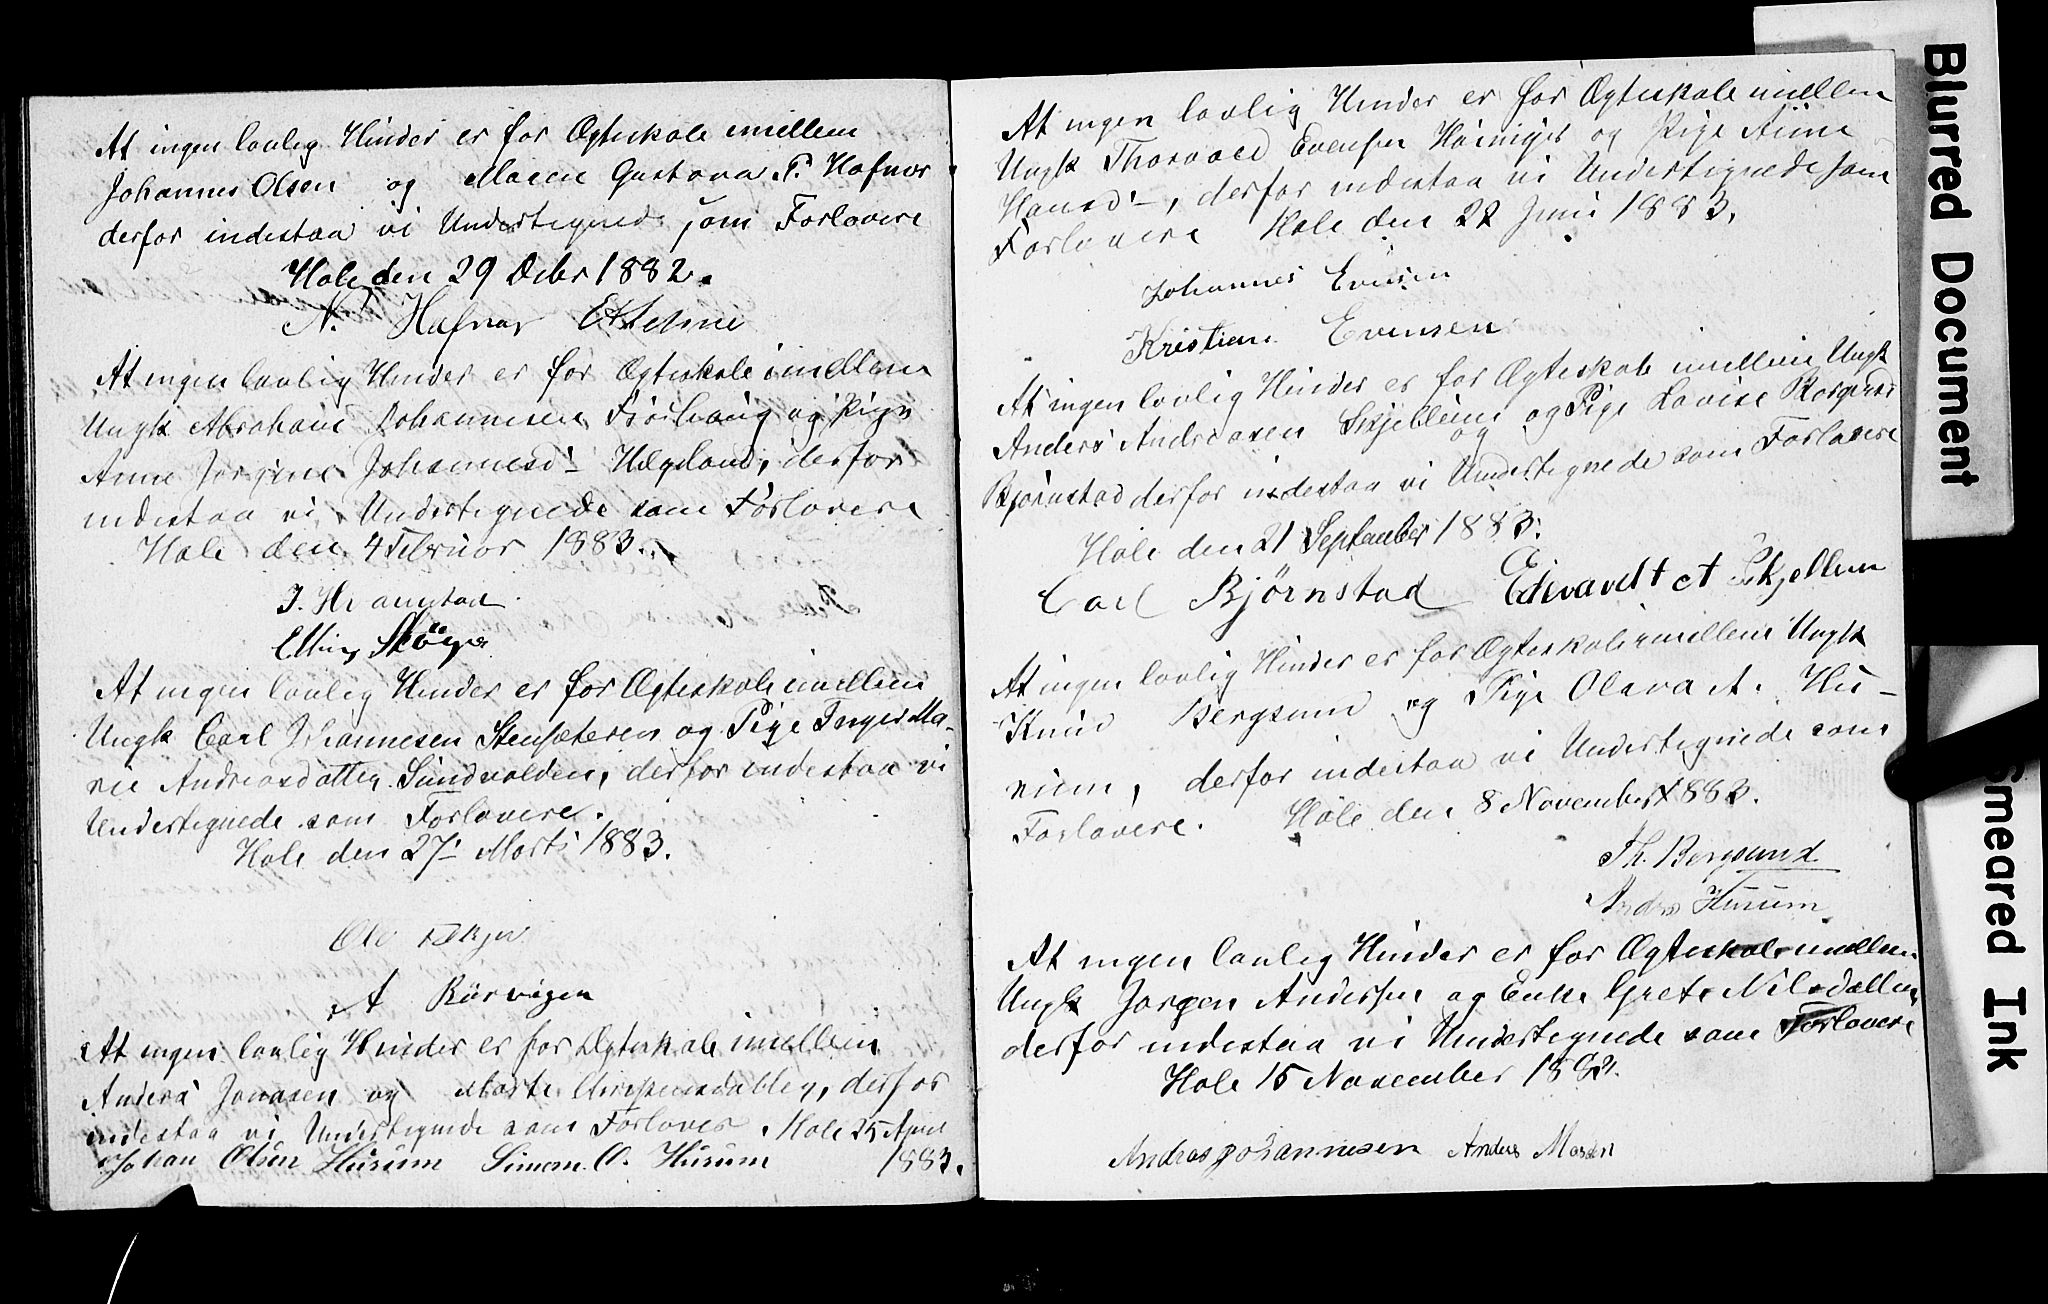 At ingen lovlig Hinder er for Ægteskab imellem
Johannes Olsen og Maren Gustava P. Hafnor
derfor indestaa vi Undertegnede som Forlovere
Hole den 29 Decbr 1882.
N. Hafnor
At ingen lovlig Hinder er for Ægteskab imellem
Ungk Abraham Johannesen og Pige
Anne Jørgine Johannesd: Hægeland, derfor
indestaa vi Undertegnede som Forlovere
Hole den 4 Februar 1883.
Elling
At ingen lovlig Hinder er for Ægteskab imellem
Ungk Carl Johannesen Stensæteren og Pige Inger Ma-
rie Andreasdatter Sundvolden, derfor indestaa vi
Undertegnede som Forlovere.
Hole den 27- Marts 1883.
Ole
A Rørvigen
At ingen lovlig Hinder er for Ægteskab imellem
Anders Jonasen og Marte derfor
indestaa vi Undertegnede som Forlover. Hole 25 April
Johan Olsen Husum Simon O. Husum 1883.
At ingen lovlig Hinder er for Ægteskab imellem
Ungk Thorvald Evensen og Pige Anne
Hansd:-, derfor indestaa vi Undertegnede som
Forlovere Hole den 22 Juni 1883.
Johannes Evensen
Kristian Evensen
At ingen lovlig Hinder er for Ægteskab imellem Ungk
Anders Andreasen Skjellum og Pige Lovise
og
Bjørnstad derfor indestaa vi Undertegnede som Forlovere
Hole den 21 September 1883.
Carl Bjørnstad Edevardt A Skjellum
At ingen lovlig Hinder er for Ægteskab imellem Ungk
Knud Bergsund og Pige Olava A. Hu-
rum, derfor indestaa vi Undertegnede som
Forlovere. Hole den 8 November 1883.
Th. Bergsund
Anders Hurum
At ingen lovlig Hinder er for Ægteskab imellem
Ungk Jørgen Andersen og Enke Grete Nilsdatter
derfor indestaa vi Undertegnede som Forlovere
Hole 15 November 1883.
Andreas Johannesen Anders
Blurred Document
Smeared Ink